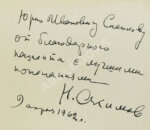 Юрию Ивановичу
от благодарного
пациента с лучшими
пожеланиями
Н. Акимов
9 апреля 1962 г.